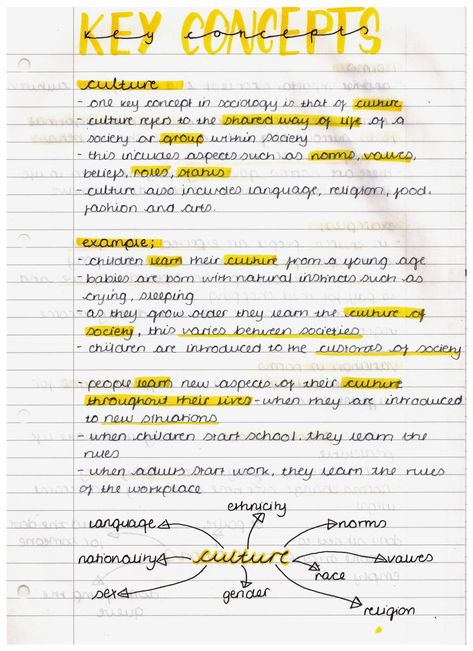 KEY CONCEPTS
key concepts
culture
- one key concept in sociology is that of culture
- culture refers to the shared way of life of a
society or group within society
- this includes aspects such as norms, values,
beliefs, roles, status
- culture also includes language, religion, food,
fashion and arts.
example;
- children learn their culture from a young age
- babies are born with natural instincts such as
crying, sleeping
- as they grow older they learn the culture of
society, this varies between societies
- children are introduced to the customs of society
- people learn new aspects of their culture
throughout their lives - when they are introduced
to new situations
- when children start school, they learn the
rules
- when adults start work, they learn the rules
of the workplace
ethnicity
language
norms
nationality
culture
values
race
sex
gender
religion